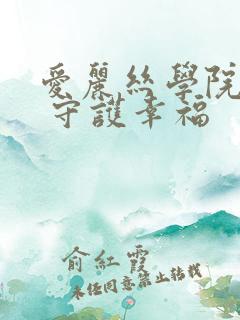 愛麗絲學院
守護幸福
俞紅霞
未經同意禁止轉載